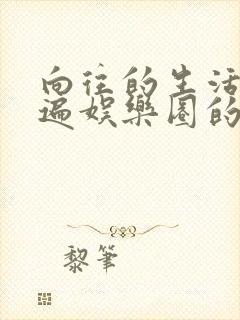 向往的生活
遍娱乐圈的
黎笔